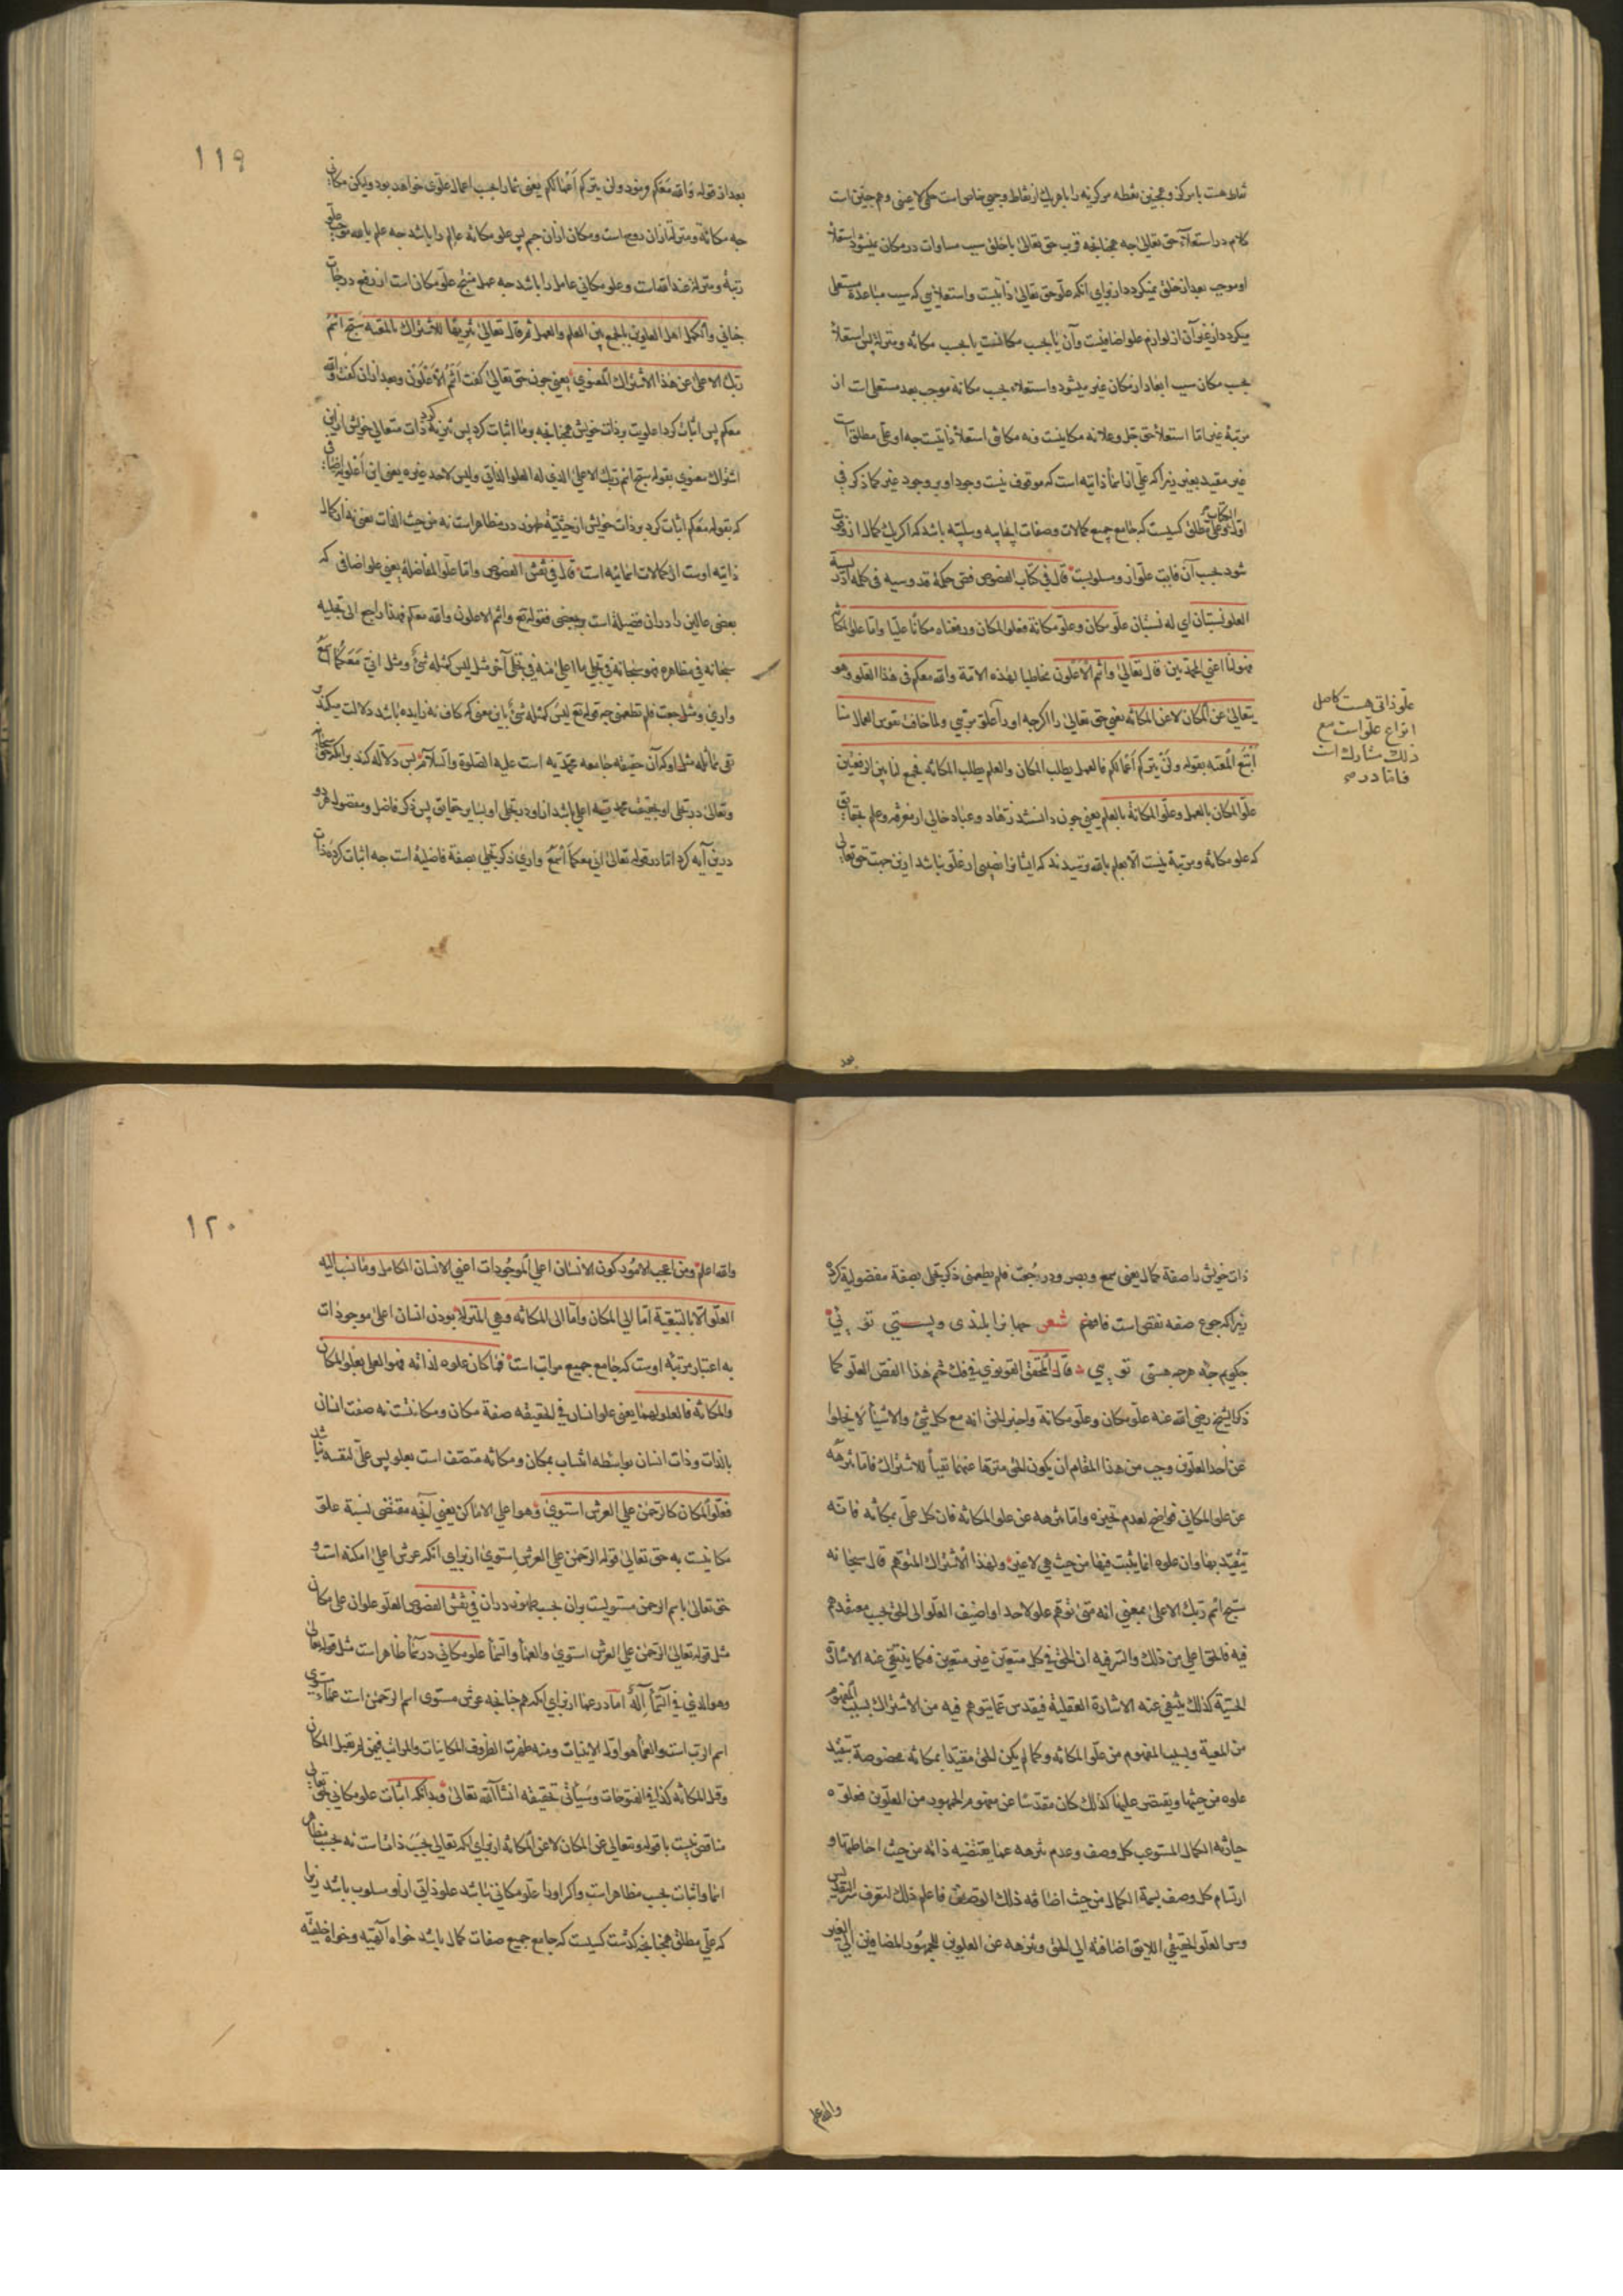 ثلاهست با مرکز و همچنین نقطه مرکزیه را با هر یک از نقاط وجهی خاص است حکم لا عینی و هم چنین است
کلام در استعلاء حق تعالی چه همچنانچه قرب حق تعالی با خلق سبب مساوات در مکان نمیشود استعلاء
او موجب بعد از خلق نمیکردد از برای انکه علو حق تعالی ذاتیست و استعلایی که سبب مباعدة مستعلی
میکردد از غیر آن از لوازم علو اضافیست و آن یا بحسب مکانست یا بحسب مکانه و منزله پس استعلاء
بحسب مکان سبب ابعاد از مکان غیر میشود و استعلاء بحسب مکانه موجب بعد مستعلی است از
مرتبهٔ غیر اما استعلاء حق جل و علا نه مکانیست و نه مکانتی استعلاء ذاتیست چه او علی مطلق است
غیر مقید بغیر زیرا که علی از اسماء ذاتیه است که موقوف نیست وجود او بر وجود غیر کما ذکر فی
اول الکتاب و علی مطلق کسیست که جامع جمیع کمالات و صفات ایجابیه و سلبیه باشد که اکر یک کمال از و فوت
شود بحسب آن فایت علو از و مسلوبست قال فی کتاب الفصوص فص حکمة قدوسیه فی کلمه ادریسیة
العلو نسبتان ای له نسبتان علو مکان و علو مکانة فعلو المکان و رفعناه مکانا علیا و اما علو المکانة
فهو لنا اعنی المحمدیین قال تعالی و انتم الاعلون مخاطبا لهذه الامة و الله معکم فی هذا العلو و هو
یتعالی عن المکان لا عن المکانه یعنی حق تعالی را اکرچه او را علو مرتبی و لما خاف نفوس العمال منا
اتبع المعیه بقوله و لن یترکم اعمالکم فالعمل یطلب المکان و العلم یطلب المکانه فجمع لنا بین الرفعتین
علو المکان بالعمل و علو المکانة بالعلم یعنی چون دانستند زهاد و عباد خالی از معرفه و علم بحقایق
که علو مکانه و مرتبة نیست الا بعلم بالله و ترسیدند که ایشانرا نصیبی از علو نباشد ازین جهت حق تعالی
علو ذاتی هست کامل
انواع علو است مع
ذلک مشارک است
فاما در
بعد
١١٩
بعد از قوله و الله معکم فرمود و لن یترکم اعمالکم یعنی شما را بحسب اعمال علوی خواهد بود و لیکن مکانی
چه مکانة و منزله از آن روح است و مکان از آن جسم پس علو مکانه عالم را باشد چه علم بالله موجب علو
رتبهٔ و منزله عند الله است و علو مکانی عامل را باشد چه عمل منتج علو مکان است از رفع درجات
جنانی و الکمل اهل العلوین بالجمع بین العلم و العمل ثم قال تعالی تنزیها للاشتراک بالمعیه سبح اسم
ربک الاعلی عن هذا الاشتراک المعنوی یعنی چون حق تعالی کفت انتم الاعلون و بعد از آن کفت و الله
معکم پس اثبات کرد اعلویت بذات خویش همچنانچه بما اثبات کرد پس تنزیه کرد ذات متعالی خویش از این
اشتراک معنوی بقوله سبح اسم ربک الاعلی الذی له العلو الذاتی و لیس لاحد غیره یعنی این اعلویه اضافی
که بقوله معکم اثبات کرد بر ذات خویش از حیثیة ظهور در مظاهر است نه من حیث الذات یعنی نه از کمال
ذاتیه اوست از کمالات اسمائیه است قال فی نقش الفصوص و اما علو المفاضله یعنی علو اضافی که
بعضی عالین را در آن فضیلة است بر بعضی فقوله تع و انتم الاعلون و الله معکم فهذا راجع الی تجلیه
سبحانه فی مظاهره فهو سبحانه فی تجلی ما اعلی منه فی تجلی آخر مثل لیس کمثله شئ و مثل اننی معکما اسمع
و اری و مثل جعت فلم تطعمنی چه قوله تع لیس کمثله شئ باین معنی که کاف نه زایده باشد دلالت میکند بر
نفی مماثله مثل او که آن حقیقه جامعه محمدیه است علیه الصلوة و السلام پس دلاله کند بر انکه حق سبحانه
و تعالی در تجلی او بحقیقت محمدیه اعلی باشد از او در تجلی او بسایر حقایق پس ذکر فاضل و مفضول هر دو
درین آیه کرد اما در قوله تعالی اننی معکما اسمع و اری ذکر تجلی بصفة فاضلیة است چه اثبات کرده ذات
ذات خویش را صفة کمال یعنی سمع و بصر و در جعت فلم تطعمنی ذکر تجلی بصفة مفضولیه کرده
زیرا که جوع صفه نقص است فافهم شعر جهانرا بلندی و پستی تویی
چکویم چه هرچه هستی تویی قال المحقق القونوی فی فک ختم هذا الفص العلو کما
ذکر الشیخ رضی الله عنه علو مکان و علو مکانة و اخبر الحق انه مع کل شئ و الاشیاء لا یخلوا
عن احد العلوین وجب من هذا المقام ان یکون الحق منزها عنهما نفیا للاشتراک فاما تنزهه
عن علو المکانی فواضح لعدم تحیزه و اما تنزهه عن علو المکانه فان کل علی بمکانه فانه
یتقید بها و ان علوه انما یثبت فیها من حیث هی لا غیر و لهذا الاشتراک المتوهم قال سبحانه
سبح اسم ربک الاعلی بمعنی انه متی توهم علو لاحد او اضیف العلو الی الحق بحسب معتقدهم
فیه فالحق اعلی من ذلک و السر فیه ان الحق فی کل متعین غیر متعین فکما ینتفی عنه الاشارة
الحسیة کذلک ینتفی عنه الاشارة العقلیة فیقدس عما یتوهم فیه من الاشتراک بسبب المفهوم
من المعیة و بسبب المفهوم من علو المکانه و کما لم یکن الحق مقیدا بمکانه مخصوصة یتقید
علوه من حیثها و یقتصر علیها کذلک کان مقدسا عن مفهوم الجمهور من العلوین فعلوه
حیازته الکمال المستوعب کل وصف و عدم تنزهه عما یقتضیه ذاته من حیث احاطتها و
ارتسام کل وصف بسمة الکمال من حیث اضافه ذلک الوصف فاعلم ذلک لتعرف سر التقدیس
و سر العلو الحقیقی اللایق اضافته الی الحق و تنزهه عن العلوین للجمهور المضافین الی الغیر
والله اعلم
١٢٠
والله اعلم و من اعجب الامور کون الانسان اعلی الموجودات اعنی الانسان الکامل و ما نسب الیه
العلو الا بالتبعیة اما الی المکان و اما الی المکانه و هی المنزله بودن انسان اعلی موجودات
به اعتبار مرتبه اوست که جامع جمیع مراتب است فما کان علوه لذاته فهو العلی بعلو المکان
و المکانه فالعلو لهما یعنی علو انسان فی الحقیقه صفة مکان و مکانتست نه صفت انسان
بالذات و ذات انسان بواسطه انتساب بمکان و مکانه متصف است بعلو پس علی لنفسه نباشد
فعلو المکان کالرحمن علی العرش استوی و هو اعلی الاماکن یعنی آنچه مقتضی نسبة علو
مکانیست به حق تعالی قوله الرحمن علی العرش استوی از برای انکه عرش اعلی امکنه است و
حق تعالی باسم الرحمن مستویست بر آن بحسب ظهور در آن فی نقش الفصوص العلو علوان علی مکان
مثل قوله تعالی الرحمن علی العرش استوی و العماء و السماء علو مکانی در سماء ظاهر است مثل قوله تعالی
و هو الذی فی السماء اله اما در عما از برای انکه همچنانچه عرش مستوی اسم الرحمن است عماء مستوی
اسم الرب است و العماء هو اول الاینیات و منه ظهرت الظروف المکانیات و المراتب فیمن لم یقبل المکان
و قبل المکانه کذا فی الفتوحات و سیأتی تحقیقه انشاء الله تعالی و بدانکه اثبات علو مکانی بحق تعالی
مناقض نیست با قوله و تعالی عن المکان لا عن المکانه از برای انکه تعالی بحسب ذات است نه بحسب مظاهر
اسما و اثبات بحسب مظاهر است و اکر او را علو مکانی نباشد علو ذاتی از او مسلوب باشد زیرا
که علی مطلق همچنانچه کذشت کسیست که جامع جمیع صفات کمال باشد خواه الهیه و خواه خلقیه